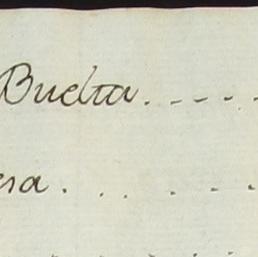 Buelta. - - - -
esa . . . . - -